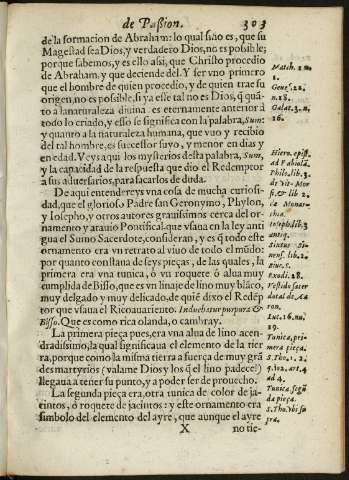 de Paßion. 303
de la formacion de Abraham: lo qual sino es, que su
Magestad sea Dios, y verdadero Dios, no es posible;
porque sabemos, y es ello assi, que Christo procedio
de Abraham, y que deciende del. Y ser vno primero
que el hombre de quien procedio, y de quien trae su
origen, no es posible, si ya esse tal no es Dios, q̃ quã-
to a la naturaleza diuina es eternamente anterior à
todo lo criado, y esso se significa con la palabra, Sum:
y quanto a la naturaleza humana, que vuo y recibio
del tal hombre, es successor suyo, y menor en dias y
en edad. Veys aqui los mysterios desta palabra, Sum,
y la capacidad de la respuesta que dio el Redemptor
à sus aduersarios, para sacarlos de duda.
De aqui entendereys vna cosa de mucha curiosi-
dad, que el glorioso Padre san Geronymo, Phylon,
y Iosepho, y otros autores grauissimos cerca del or-
namento y atauio Pontifical, que vsaua en la ley anti
gua el Sumo Sacerdote, consideran, y es q̃ todo este
ornamento era vn retrato al viuo de todo el mũdo:
por quanto constaua de seys pieças, de las quales, la
primera era vna tunica, ò vn roquete ò alua muy
cumplida de Bisso, que es vn linaje de lino muy blãco,
muy delgado y muy delicado, de quiẽ dixo el Redẽp
tor que vsaua el Rico auariento. Induebatur purpura &
Bisso. Que es como rica olanda, o cambray.
La primera pieça pues, era vna alua de lino acen-
dradissimo, la qual significaua el elemento de la tier
ra, porque como la misma tierra a fuerça de muy grã
des martyrios (valame Dios y los q̃ el lino padece!)
llegaua à tener su punto, y a poder ser de prouecho.
La segunda pieça era, otra tunica de color de ja-
cintos, ò roquete de jacintos: y este ornamento era
simbolo del elemento del ayre, que aunque el ayre
X no tie-
Match. 1. n.
1.
Genes. 22.
n. 18.
Galat. 3. n.
16.
Hiero. epist.
ad Fabiolã.
Philo. lib. 3.
de Vit. Mor
si, & lib. 2.
de Monar-
chia.
Ioseph. lib. 3
antiq.
Sixtus Si-
nensi. lib. 2.
Exodi. 28.
Vestido sacer
dotal de Aa
ron.
Luc. 16. nu.
19.
Tunica, pri-
mera pieça.
S. Tho. 1. 2.
q. 102. art. 4
ad 4.
Tunica segũ
da pieça.
S. Tho. vbi su
pra.